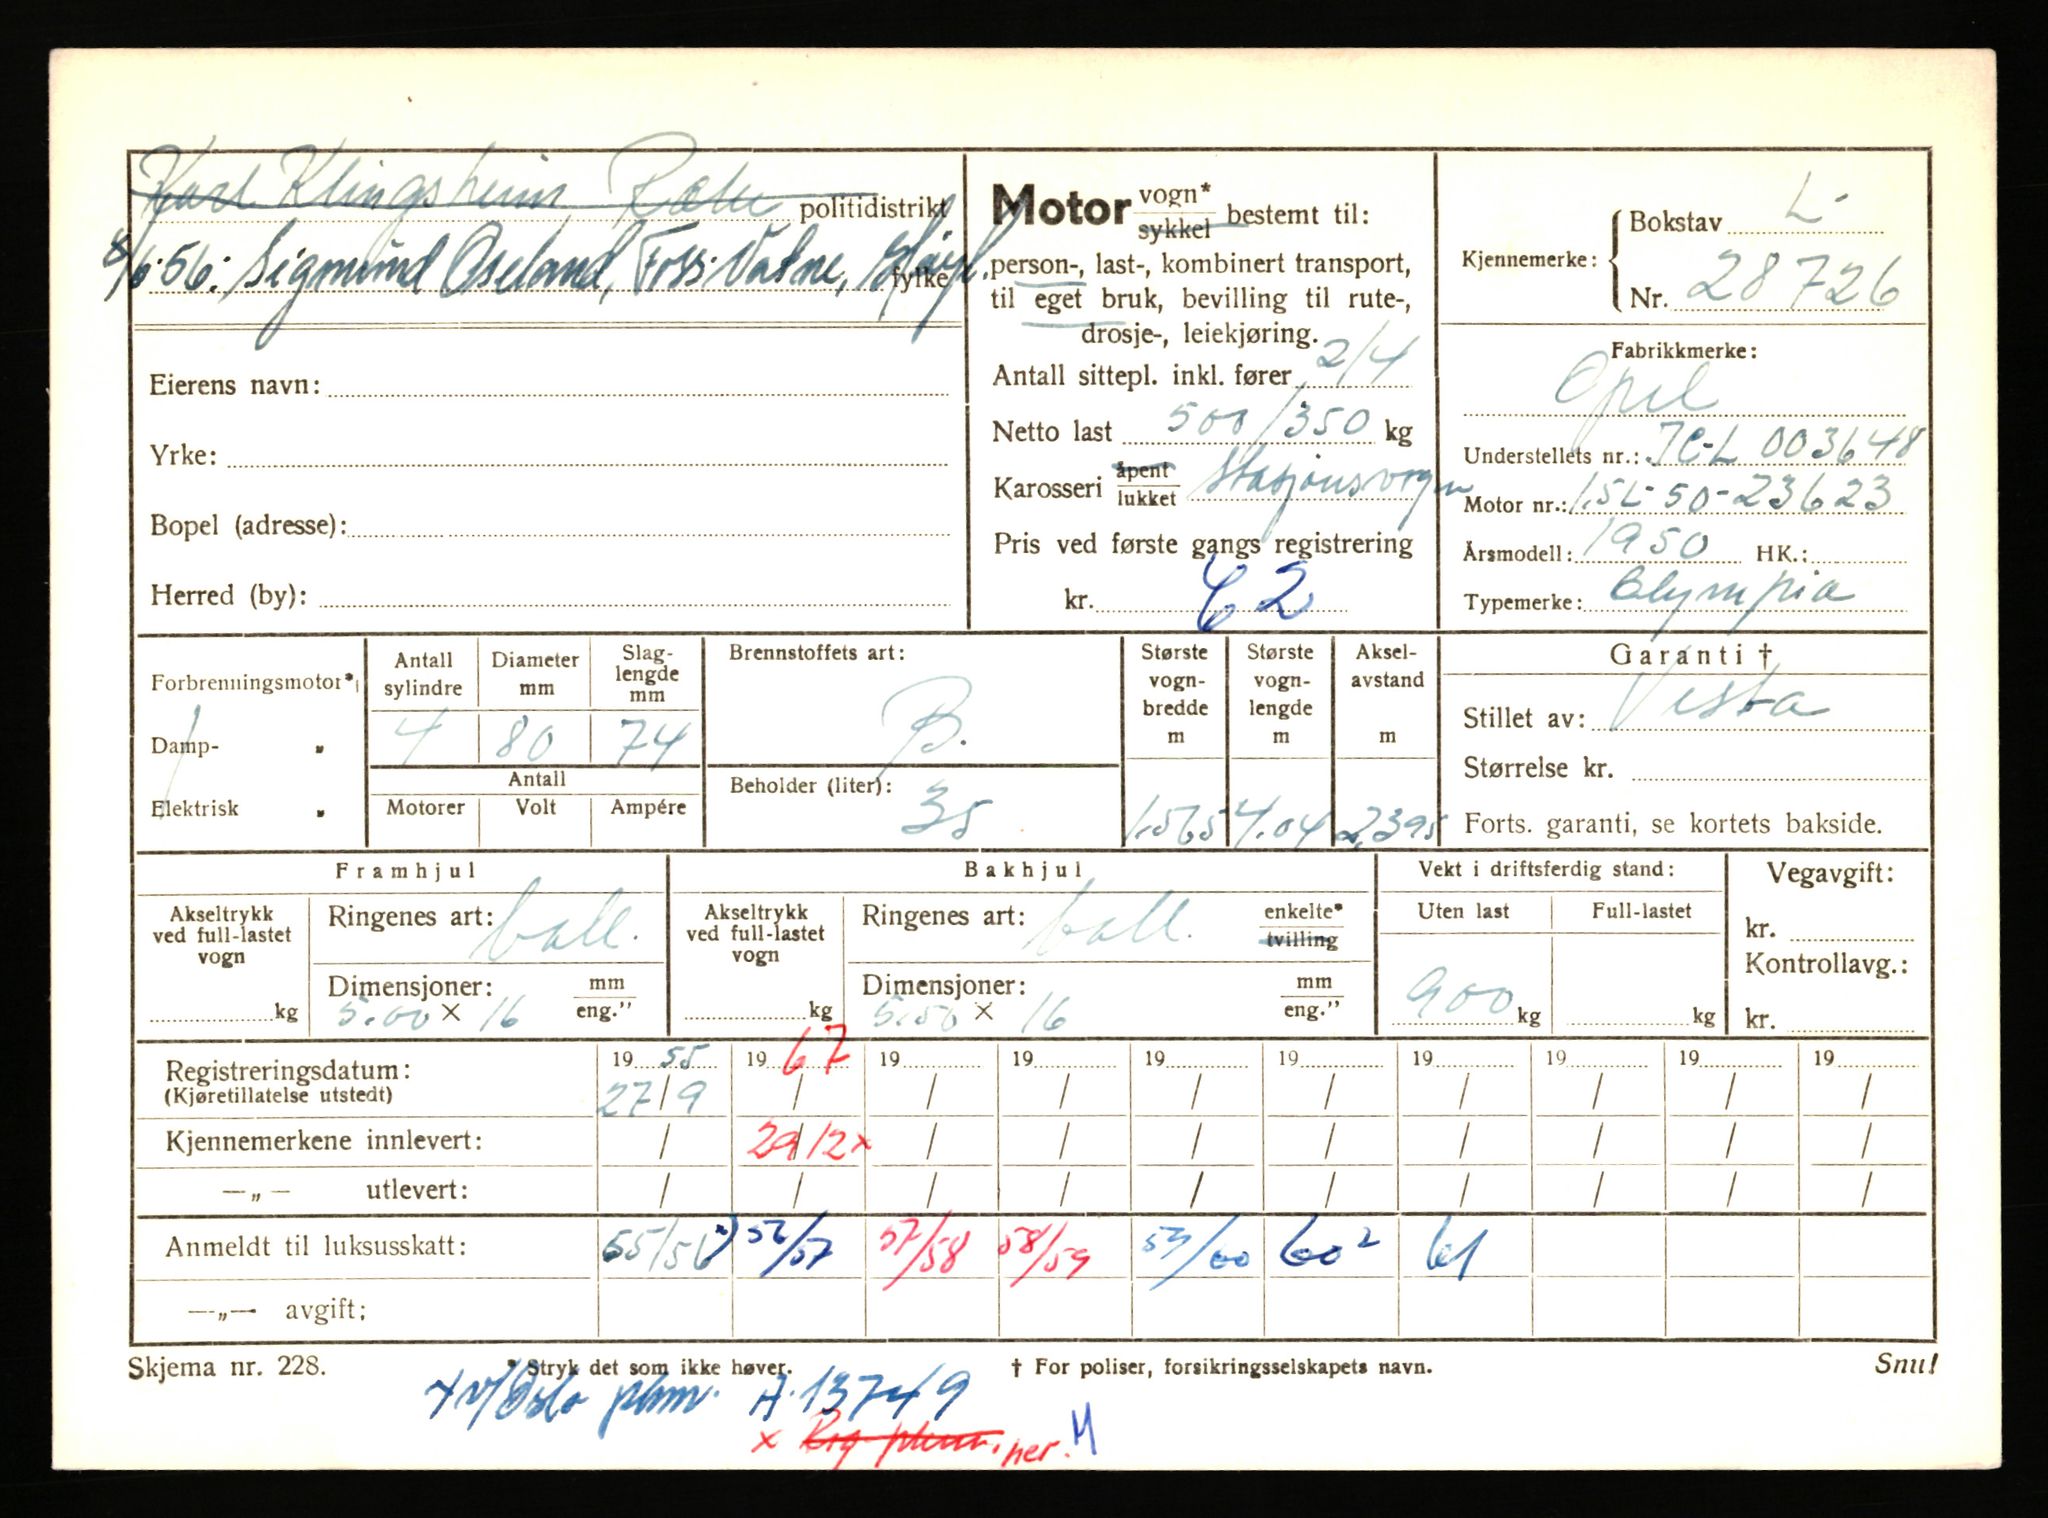 Karl Klingsheim politidistrikt
8/6-56: Sigmund Oseland, Foss-Vatne, fylke
Eierens navn:
Yrke:
Bopel (adresse):
Herred (by):
Motor vogn* / sykkel bestemt til:
person-, last-, kombinert transport,
til eget bruk, bevilling til rute-,
drosje-, leiekjøring.
Antall sittepl. inkl. fører 2/4
Netto last 500/350 kg
Karosseri åpent / lukket Stasjonsvogn
Pris ved første gangs registrering
kr. 62
Kjennemerke: Bokstav L-
Nr. 28726
Fabrikkmerke:
Opel
Understellets nr.: JC-L 003648
Motor nr.: 1.5L-50-23623
Årsmodell: 1950 HK.:
Typemerke: Olympia
Forbrenningsmotor*
Damp- "
Elektrisk "
Antall sylindre Diameter mm Slaglengde mm
4 80 74
Antall
Motorer Volt Ampére
Brennstoffets art:
B.
Beholder (liter):
35
Største vognbredde m Største vognlengde m Akselavstand m
1.565 4.04 2,395
Garanti †
Stillet av: Vesta
Størrelse kr.
Forts. garanti, se kortets bakside.
Framhjul
Akseltrykk ved full-lastet vogn kg
Ringenes art: ball.
Dimensjoner: mm / eng."
5.00 × 16
Bakhjul
Akseltrykk ved full-lastet vogn kg
Ringenes art: ball. enkelte* / tvilling
Dimensjoner: mm / eng."
5.50 × 16
Vekt i driftsferdig stand:
Uten last Full-lastet
900 kg kg
Vegavgift:
kr.
Kontrollavg.:
kr.
Registreringsdatum: 19 55 19 67 19 19 19 19 19 19 19 19
(Kjøretillatelse utstedt) 27/9 / / / / / / / / /
Kjennemerkene innlevert: / 29/12x / / / / / / / /
—„— utlevert: / / / / / / / / / /
Anmeldt til luksusskatt: 55/56 56/57 57/58 58/59 59/60 60² 61
—„— avgift:
Skjema nr. 228. * Stryk det som ikke høver. † For poliser, forsikringsselskapets navn. Snu!
v/Oslo A-13749
x her. M